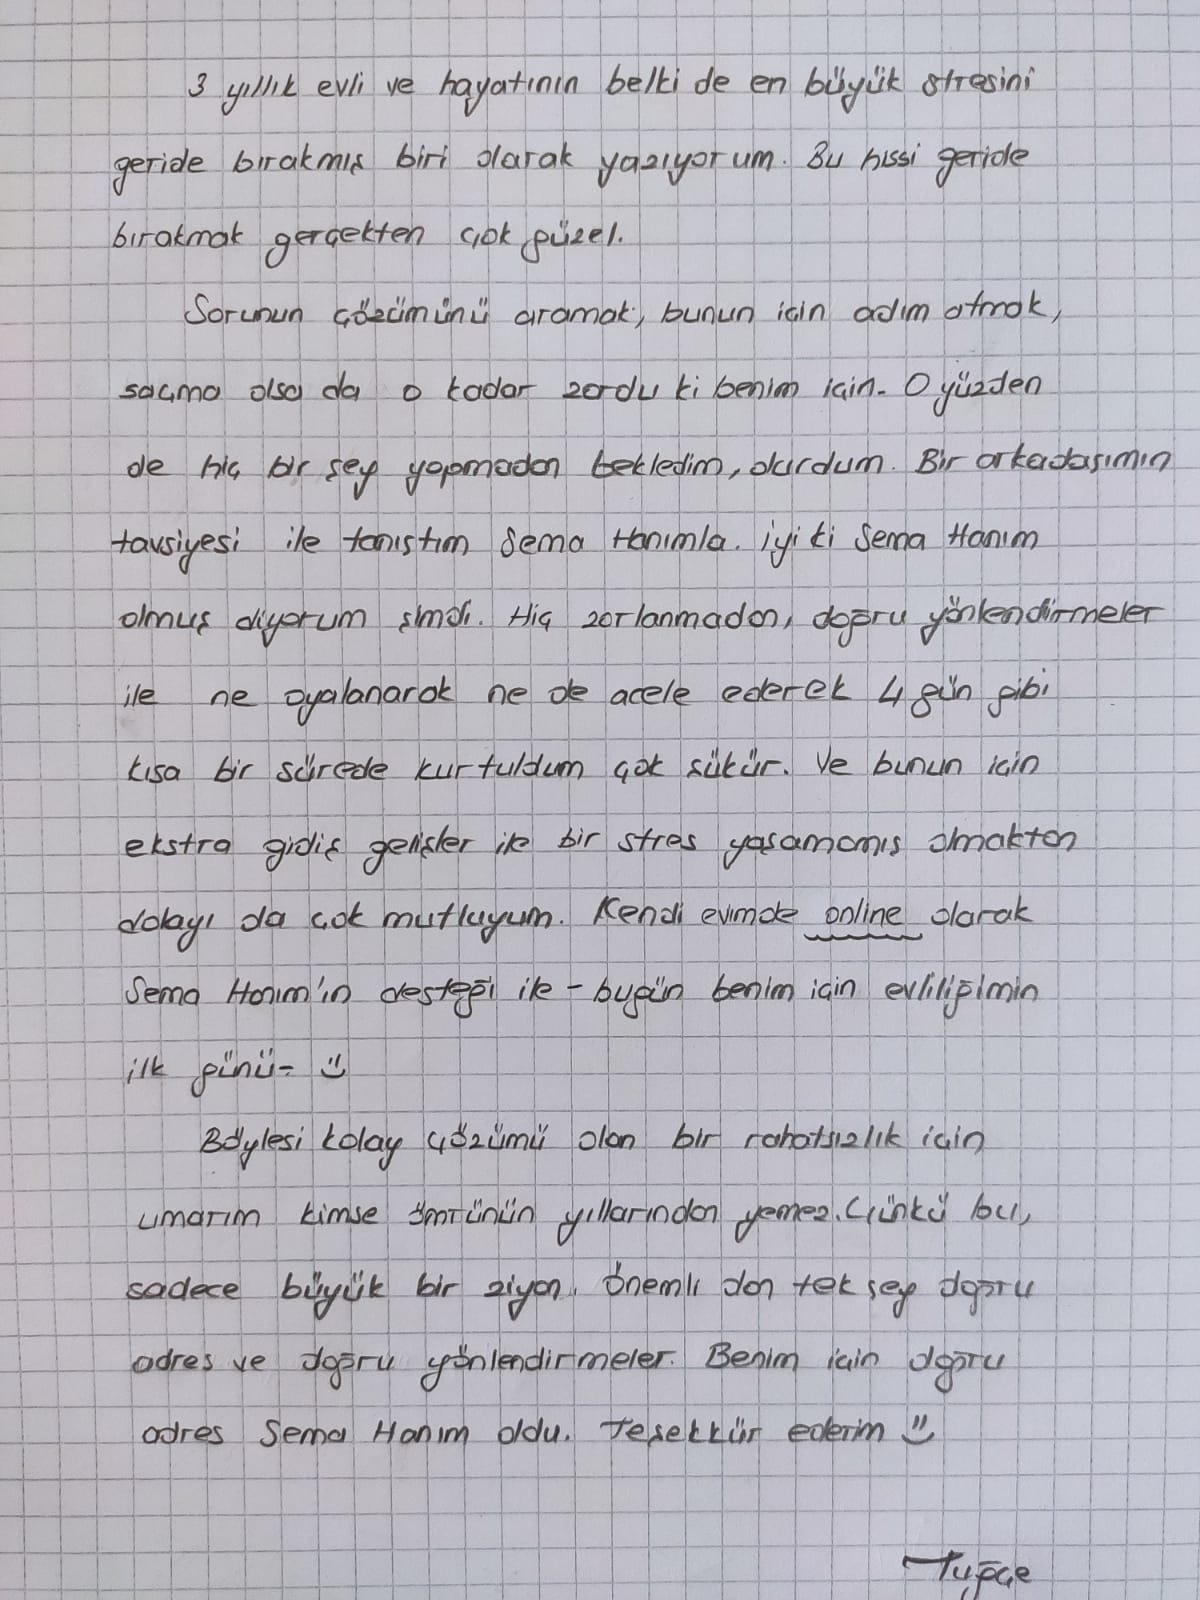 3 yıllık evli ve hayatının belki de en büyük stresini
geride bırakmış biri olarak yazıyorum. Bu hissi geride
bırakmak gerçekten çok güzel.
Sorunun çözümünü aramak, bunun için adım atmak,
saçma olsa da o kadar zordu ki benim için. O yüzden
de hiç bir şey yapmadan bekledim, durdum. Bir arkadaşımın
tavsiyesi ile tanıştım Sema Hanımla. İyi ki Sema Hanım
olmuş diyorum şimdi. Hiç zorlanmadan, doğru yönlendirmeler
ile ne oyalanarak ne de acele ederek 4 gün gibi
kısa bir sürede kurtuldum çok şükür. Ve bunun için
ekstra gidiş gelişler ile bir stres yaşamamış olmaktan
dolayı da çok mutluyum. Kendi evimde online olarak
Sema Hanım'ın desteği ile - bugün benim için evliliğimin
ilk günü - ☺
Böylesi kolay çözümü olan bir rahatsızlık için
umarım kimse ömrünün yıllarından yemez. Çünkü bu,
sadece büyük bir ziyan. Önemli olan tek şey doğru
adres ve doğru yönlendirmeler. Benim için doğru
adres Sema Hanım oldu. Teşekkür ederim ☺
Tuğçe